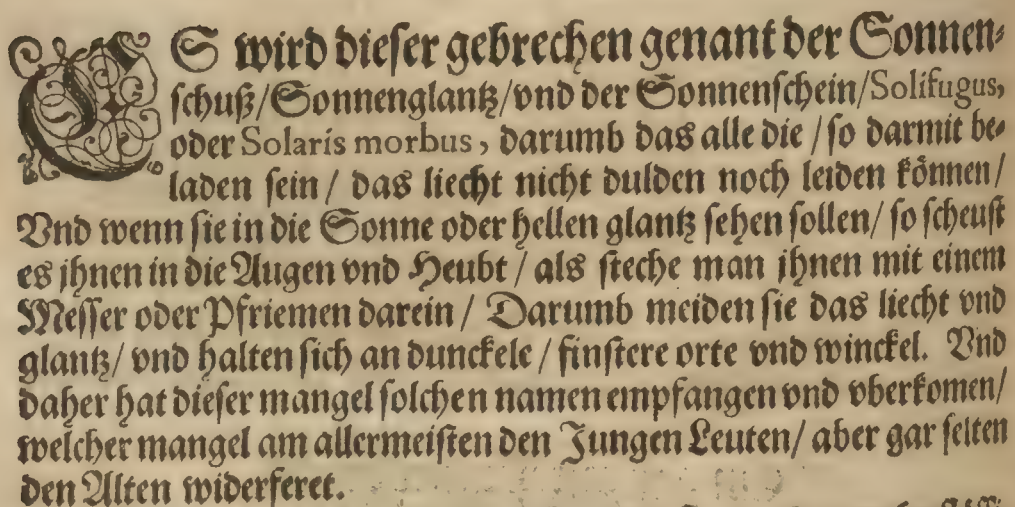 ES wird dieser gebrechen genant der Sonnen⸗
schuß/Sonnenglantz/vnd der Sonnenschein/Solifugus,
oder Solaris morbus, darumb das alle die / so darmit be⸗
laden sein / das liecht nicht dulden noch leiden können/
Vnd wenn sie in die Sonne oder hellen glantz sehen sollen/ so scheust
es jhnen in die Augen vnd Heubt / als steche man jhnen mit einem
Messer oder Pfriemen darein / Darumb meiden sie das liecht vnd
glantz/ vnd halten sich an dunckele / finstere orte vnd winckel. Vnd
daher hat dieser mangel solchen namen empfangen vnd vberkomen/
welcher mangel am allermeisten den Jungen Leuten/ aber gar selten
den Alten widerferet.